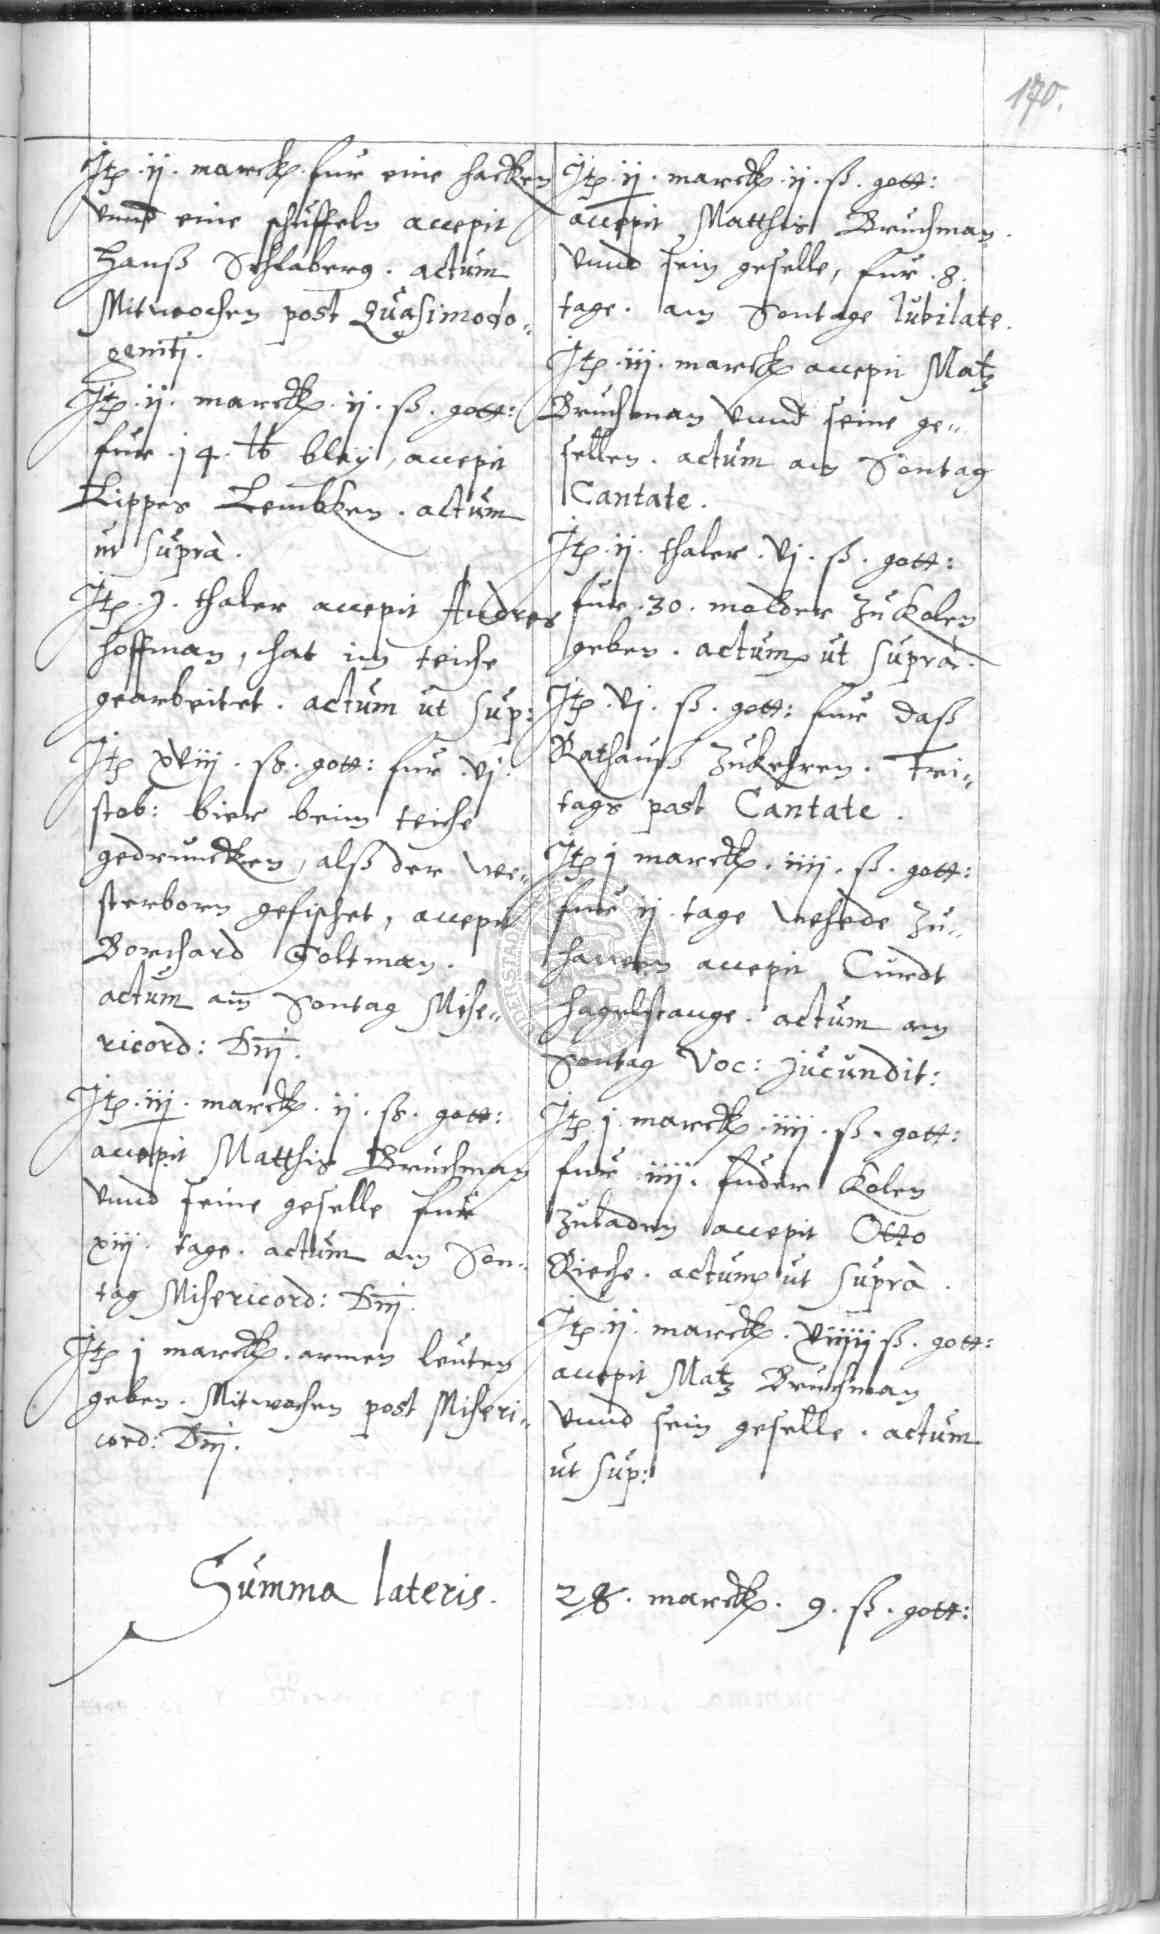 170.
Jtē. ij. marck. fur eine hacken
vnnd eine schuffeln accepit
Hanß Schlaberg. actum
Mitwochen post Quasimodo-
geniti.
Jtē. ij. marck. ij. ß. gott:
fur. 14. ℔ bley, accepit
Lippes Lembken. actum
ut supra.
Jtē. j. thaler accepit Andres
Hoffman, hat im teiche
gearbeitet. actum ut sup:
Jtē xviij. ß. gott: fur. vj.
stob: bier beim teiche
gedruncken, alß der we-
sterborn gefischet, accepit
Borchard Goltman.
actum am Sontag Mise-
ricord: Dnj.
Jtē. iij. marck. ij. ß. gott:
accepit Matthis Bruchman
vnnd seine geselle fur
xiij. tage. actum am Son-
tag Misericord: Dnj.
Jtē j marck. armen leuten
geben. Mitwochen post Miseri-
cord: Dnj.
Jtē. ij. marck. ij. ß. gott:
accepit Matthis Bruchman.
vnnd sein geselle, fur. 8.
tage. am Sontage Iubilate.
Jtē. iij. marck accepit Matz
Bruchman vnnd seine ge-
sellen. actum am Sontag
Cantate.
Jtē. ij. thaler. vj. ß. gott:
fur. 30. molder zu Kolen
geben. actum ut supra.
Jtē. vj. ß. gott: fur daß
Rathauß zukehren. Frei-
tags post Cantate.
Jtē j marck. iiij. ß. gott:
fur ij. tage wehede zu-
hawen accepit Curdt
Hagelstange. actum am
Sontag Voc: jucundit:
Jtē. j. marck. iiij. ß. gott:
fur iiij. fuder Kolen
zuladen accepit Otto
Rieche. actum ut supra.
Jtē. ij. marck. viiij ß. gott:
accepit Matz Bruchman
vnnd sein geselle. actum
ut sup:
Summa lateris. 28. marck. 9. ß. gott: